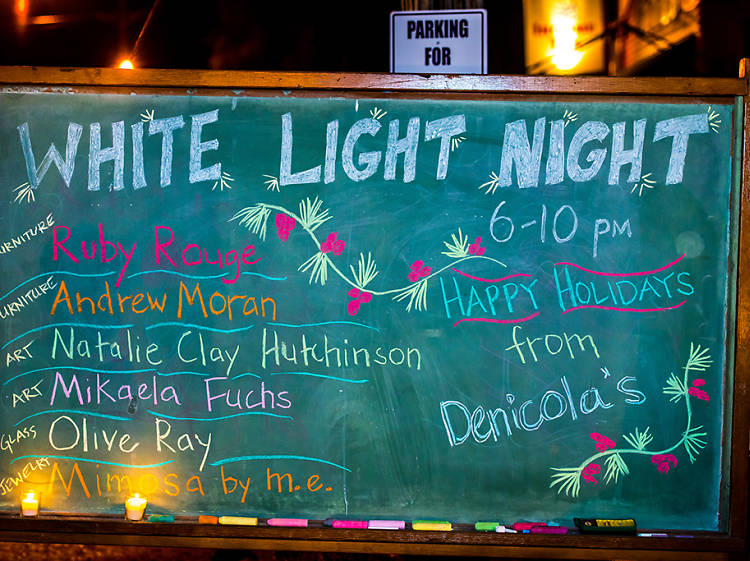 PARKING
FOR
WHITE LIGHT NIGHT
6-10 PM
HAPPY HOLIDAYS
from
Denicola's
URNITURE Ruby Rouge
URNITURE Andrew Moran
ART Natalie Clay Hutchinson
ART Mikaela Fuchs
GLASS Olive Ray
JEWELRY Mimosa by m.e.